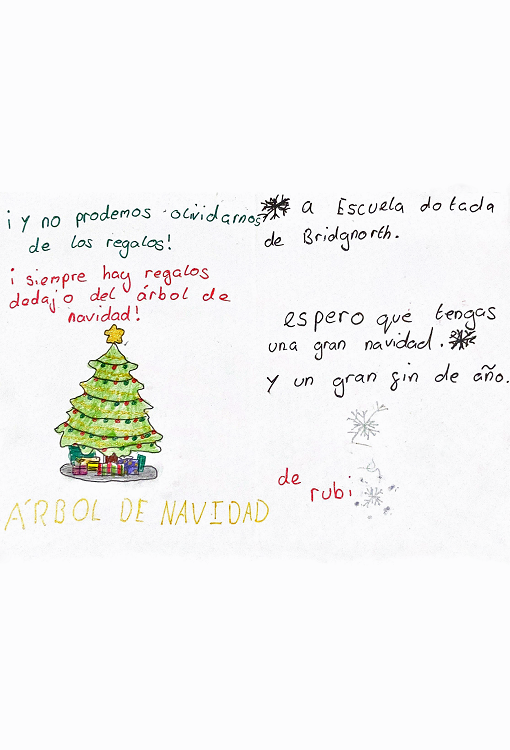 ¡ y no prodemos olividarnos
de los regalos!
¡ siempre hay regalos
dadajo del árbol de
navidad!
ÁRBOL DE NAVIDAD
a Escuela dotada
de Bridgnorth.
espero que tengas
una gran navidad.
Y un gran fin de año.
de
rubi